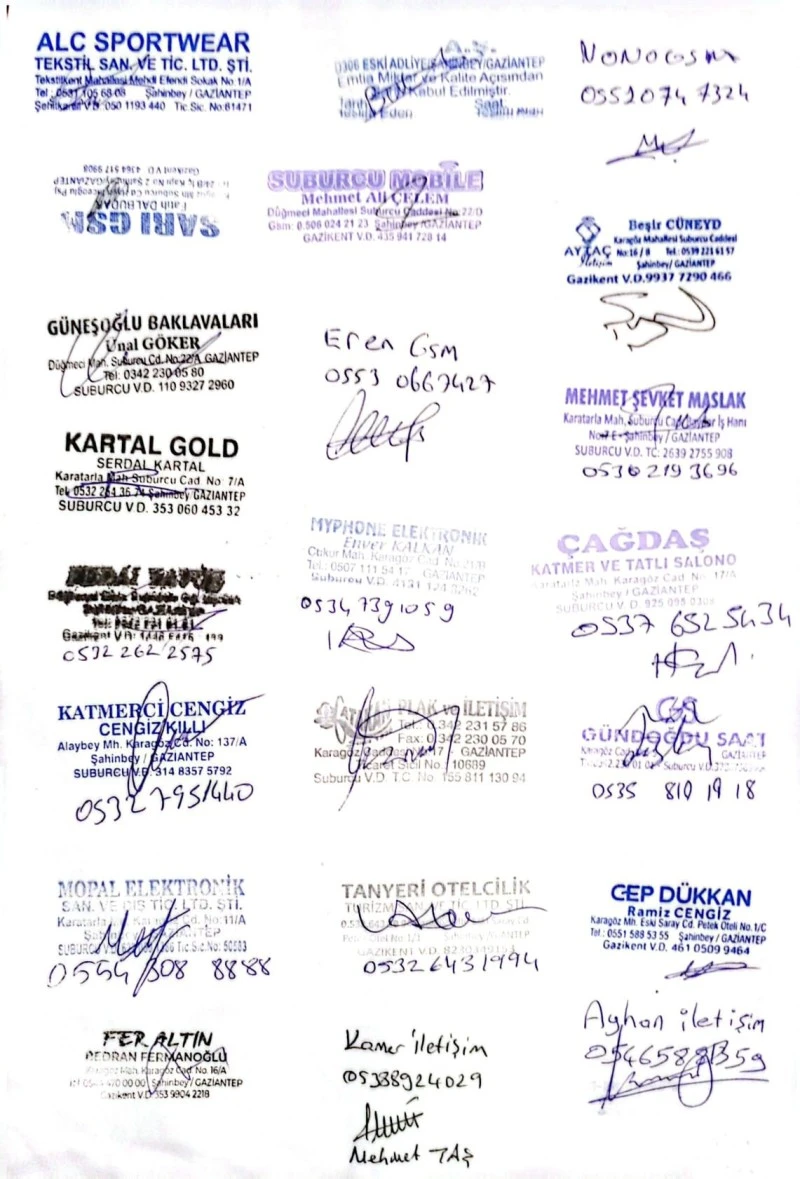 ALC SPORTWEAR
TEKSTİL SAN. VE TİC. LTD. ŞTİ.
Tekstilkent Mahallesi Mehdi Efendi Sokak No 1/A
Tel : 0531 105 68 08 Şahinbey / GAZİANTEP
Şehitkamil V.D. 050 1193 440 Tic Sic. No:81471
A.Ş.
ESKİ ADLİYE /GAZİANTEP
Emtia Miktar ve Kalite Açısından
Kabul Edilmiştir.
Tarih Saat
Teslim Eden Teslim Alan
NONOGSM
0551 074 7324
SARI GSM
Fatih DALBUDAK
Gazikent V.D. 4364 517 9908
SUBURCU MOBİLE
Mehmet Ali ÇELEM
Düğmeci Mahallesi Suburcu Caddesi No:22/D
Gsm: 0.506 024 21 23 Şahinbey /GAZİANTEP
GAZİKENT V.D. 435 941 728 14
Beşir CÜNEYD
Karagöz Mahallesi Suburcu Caddesi
AYTAÇ No:16 / B Tel.: 0539 221 61 57
İletişim Şahinbey / GAZİANTEP
Gazikent V.D.9937 7290 466
GÜNEŞOĞLU BAKLAVALARI
Ünal GÖKER
Düğmeci Mah. Suburcu Cd. No:22/A GAZİANTEP
Tel: 0342 230 05 80
SUBURCU V.D. 110 9327 2960
Eren Gsm
0553 0667427
MEHMET ŞEVKET MASLAK
Karatarla Mah. Suburcu Cad. İş Hanı
No:7 E - Şahinbey / GAZİANTEP
SUBURCU V.D. TC: 2639 2755 908
0530 219 3696
KARTAL GOLD
SERDAL KARTAL
Karatarla Mah Suburcu Cad No 7/A
Tel 0532 264 36 74 Şahinbey/ GAZİANTEP
SUBURCU V D. 353 060 453 32
MYPHONE ELEKTRONİK
Enver KALKAN
Çukur Mah. Karagöz Cad.
Tel.: 0507 111 54 17 GAZİANTEP
Suburcu V.D.
0534 739 1059
ÇAĞDAŞ
KATMER VE TATLI SALONO
Karatarla Mah. Karagöz Cad. No. 17/A
Şahinbey / GAZİANTEP
SUBURCU V.D. 925 095 0309
0537 652 5434
0532 262 2575
KATMERCİ CENGİZ
CENGİZ KILLI
Alaybey Mh. Karagöz Cd. No: 137/A
Şahinbey / GAZİANTEP
SUBURCU V.D. 314 8357 5792
0532 7951440
PLAK ve İLETİŞİM
Tel.: 0.342 231 57 86
Fax: 0.342 230 05 70
Karagöz Caddesi 17 GAZİANTEP
Ticaret Sicil No: 10689
Suburcu V.D. T.C. No 155 811 130 94
GS
GÜNDOĞDU SAAT
0535 810 19 18
MOPAL ELEKTRONİK
SAN. VE DIŞ TİC. LTD. ŞTİ.
Karatarla No:11/A
GAZİANTEP
SUBURCU Tic Sic.No: 50503
0554 308 8888
TANYERİ OTELCİLİK
TURİZM SAN. VE TİC. LTD. ŞTİ.
GAZİKENT V.D.
0532 6431994
CEP DÜKKAN
Ramiz CENGİZ
Karagöz Mh. Eski Saray Cd. Petek Oteli No.1/C
Tel : 0551 588 53 55 Şahinbey / GAZİANTEP
Gazikent V.D. 461 0509 9464
FER ALTIN
BEDRAN FERMANOĞLU
Karagöz Cad. No 16/A
Şahinbey / GAZİANTEP
Gazikent V.D 353 9904 2218
Kamer iletişim
05388924029
Mehmet TAŞ
Ayhan iletişim
05465881359